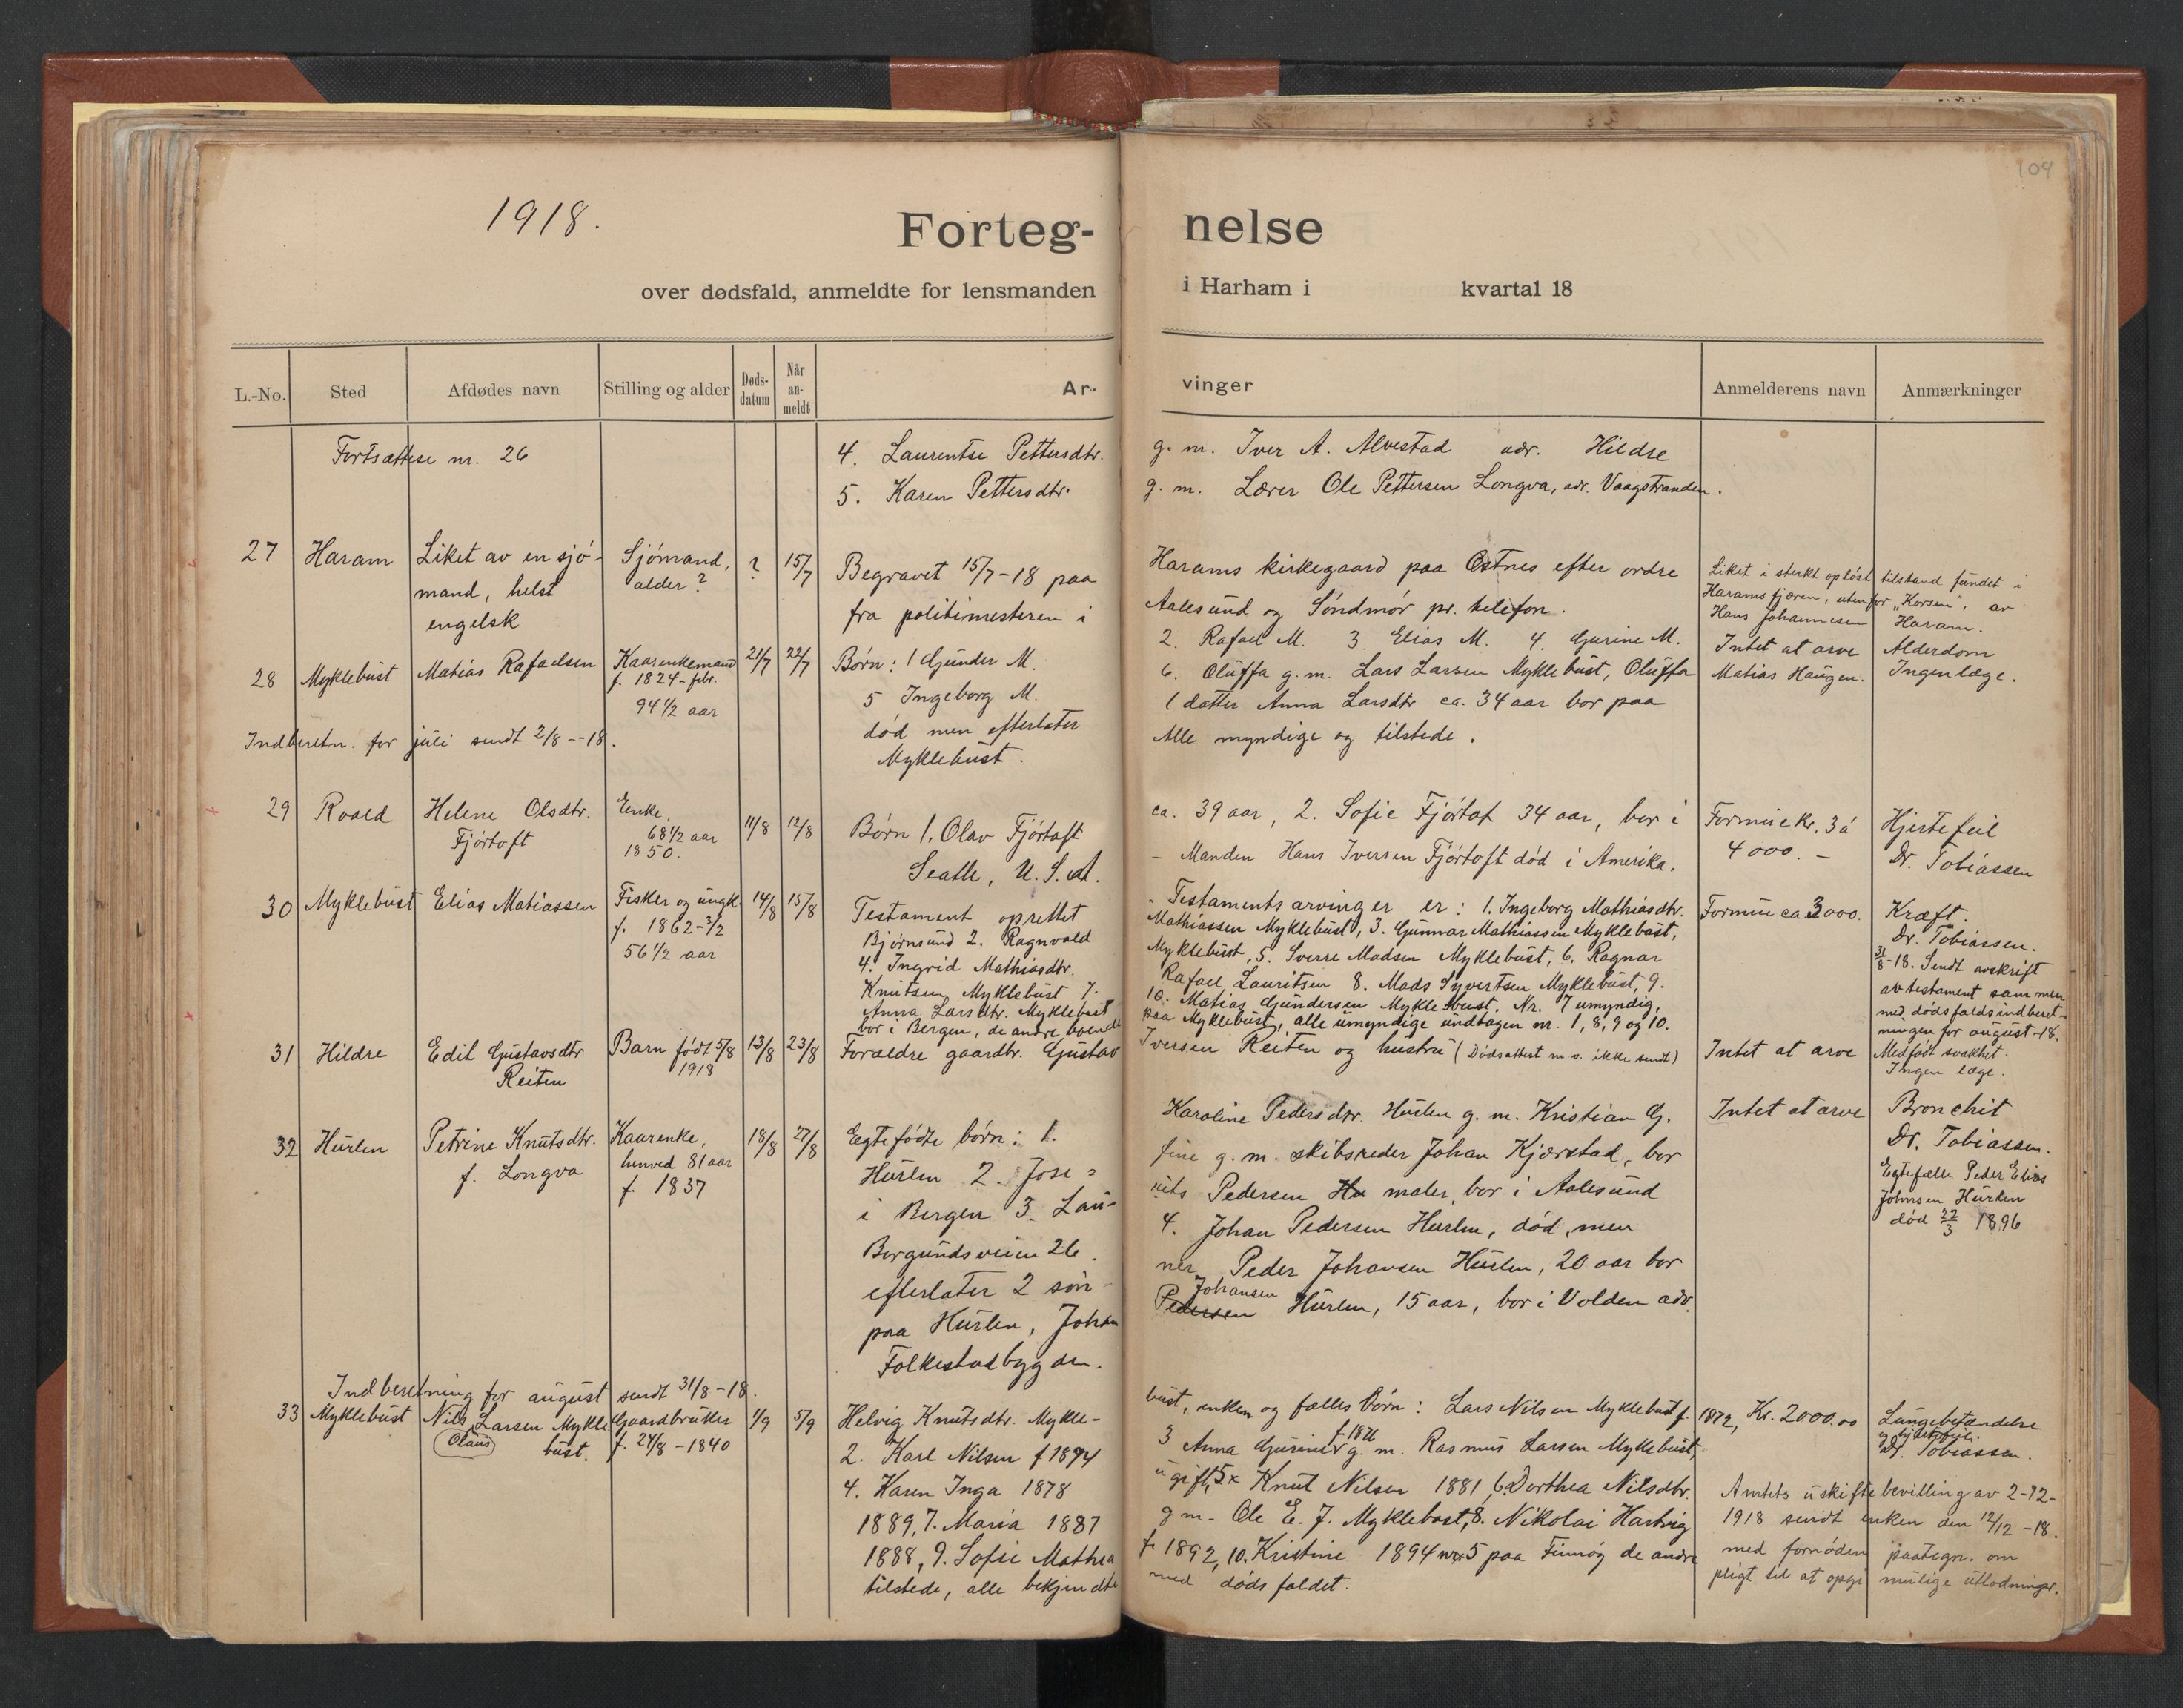 109
1918.
Forteg-
nelse
over dødsfald, anmeldte for lensmanden
i Harham i kvartal 18
L.-No.
Sted
Afdødes navn
Stilling og alder
Døds-
datum
Når
an-
meldt
Ar-
vinger
Anmelderens navn
Anmærkninger
Fortsættese nr. 26
4. Laurentse Pettersdtr.
g. m. Iver A. Alvestad adr. Hildre
5. Karen Pettersdtr.
g. m. Lærer Ole Pettersen Longva, adr. Vaagstranden.
27
Haram
Liket av en sjö-
mand, helst
engelsk
Sjömand,
alder?
?
15/7
Begravet 15/7-18 paa
fra politimesteren i
Harams kirkegaard paa Østnes efter ordre
Aalesund og Söndmör pr. telefon.
Liket i sterkt opløst tilstand fundet i
Haramsfjæren, utenfor "Korsen", av
Hans Johannesen Haram.
28
Myklebust
Matias Rafaelsen
Kaarenkemand
f. 1824 - febr.
94 1/2 aar
21/7
22/7
Børn: 1 Gunder M.
5 Ingeborg M.
død men efterlater
Myklebust.
2. Rafael M. 3. Elias M. 4. Gurine M.
6. Oluffa g. m. Lars Larsen Myklebust, Oluffa
1 datter Anna Larsdtr ca. 34 aar bor paa
Alle myndige og tilstede.
Intet at arve
Matias Haugen.
Alderdom
Ingen læge.
Indberetn. for juli sendt 2/8--18.
29
Roald
Helene Olsdtr.
Fjörtoft
Enke,
68 1/2 aar
1850.
11/8
12/8
Børn 1. Olav Fjörtoft
Seatle, U. S. A.
ca. 39 aar, 2. Sofie Fjörtof 34 aar, bor i
- Manden Hans Iversen Fjörtoft död i Amerika.
Formue kr. 3 á
4000. -
Hjertefeil
Dr. Tobiassen
30
Myklebust
Elias Matiassen
Fisker og ungk.
f. 1862-3/2
56 1/2 aar
14/8
15/8
Testament oprettet
Bjørnsund 2. Ragnvald
4. Ingrid Mathiasdtr.
Knutsen Myklebust 7.
Anna Larsdtr. Myklebust
bor i Bergen, de andre boende
. Testaments arvinger er: 1. Ingeborg Mathiasdtr.
Mathiassen Myklebust, 3. Gunnar Mathiassen Myklebust,
Myklebust, 5. Sverre Madsen Myklebust, 6. Ragnar
Rafael Lauritsen 8. Mads Syvertsen Myklebust, 9.
10. Matias Gundersen Myklebust. Nr. 7 umyndig,
paa Myklebust, alle umyndige undtagen nr. 1, 8, 9 og 10.
Formue ca 3000.
Kræft.
Dr. Tobiassen.
31/8-18. Sendt avskrift
av testament sammen
med dødsfaldsindberet-
ningen for august-18.
31
Hildre
Edit Gustavsdtr
Reiten
Barn født 5/8
1918
13/8
23/8
Forældre gaardbr. Gustav
Iversen Reiten og hustru (Dødsattest m v. ikke sendt)
Intet at arve
Medfødt svakhet.
Ingen læge.
32
Hurlen
Petrine Knutsdtr.
f. Longva
Kaarenke,
henved 81 aar
f. 1837
18/8
27/8
Egtefødte børn: 1.
Hurlen 2. Jose=
i Bergen 3. Lau-
Borgundsveien 26.
efterlater 2 søn-
paa Hurlen, Johan
Folkestadbygden.
Karoline Pedersdtr. Hurlen g. m. Kristian G.
fine g. m. skibsreder Johan Kjærstad, bor
rits Pedersen Hu maler, bor i Aalesund
4. Johan Pedersen Hurlen, död, men
ner Peder Johansen Hurlen, 20 aar bor
Johansen
Pedersen Hurlen, 15 aar, bor i Volden adr.
Intet at arve
Bronchit
Dr. Tobiassen.
Egtefælle Peder Elias
Johnsen Hurlen
död 22/3 1896
Indberetning for august sendt 31/8-18.
33
Myklebust
Nils Larsen Mykle
Olaus bust.
Gaardbruker
f. 24/8-1840
1/9
5/9
Helvig Knutsdtr. Mykle-
2. Karl Nilsen f 1874
4. Karen Inga 1878
1889, 7. Maria 1887
1888, 9. Sofie Mathea
tilstede, alle bekjendte
bust, enken og fælles børn: Lars Nilsen Myklebust f. 1872,
f 1876
3 Anna Gurine g. m. Rasmus Larsen Myklebust,
ugift, 5 x Knut Nilsen 1881, 6. Dorthea Nilsdtr.
g m. Ole E. J. Myklebost, 8. Nikolai Hartvig
f 1892, 10. Kristine 1894 nr 5 paa Finnøy de andre
med dødsfaldet.
Kr. 2000.00
Lungebetændelse
og hjertefeil.
Dr. Tobiassen.
Amtets uskiftebevilling av 2-12-
1918 sendt enken den 12/12-18.
med fornøden paategn. om
pligt til at opgi mulige utlodninger.